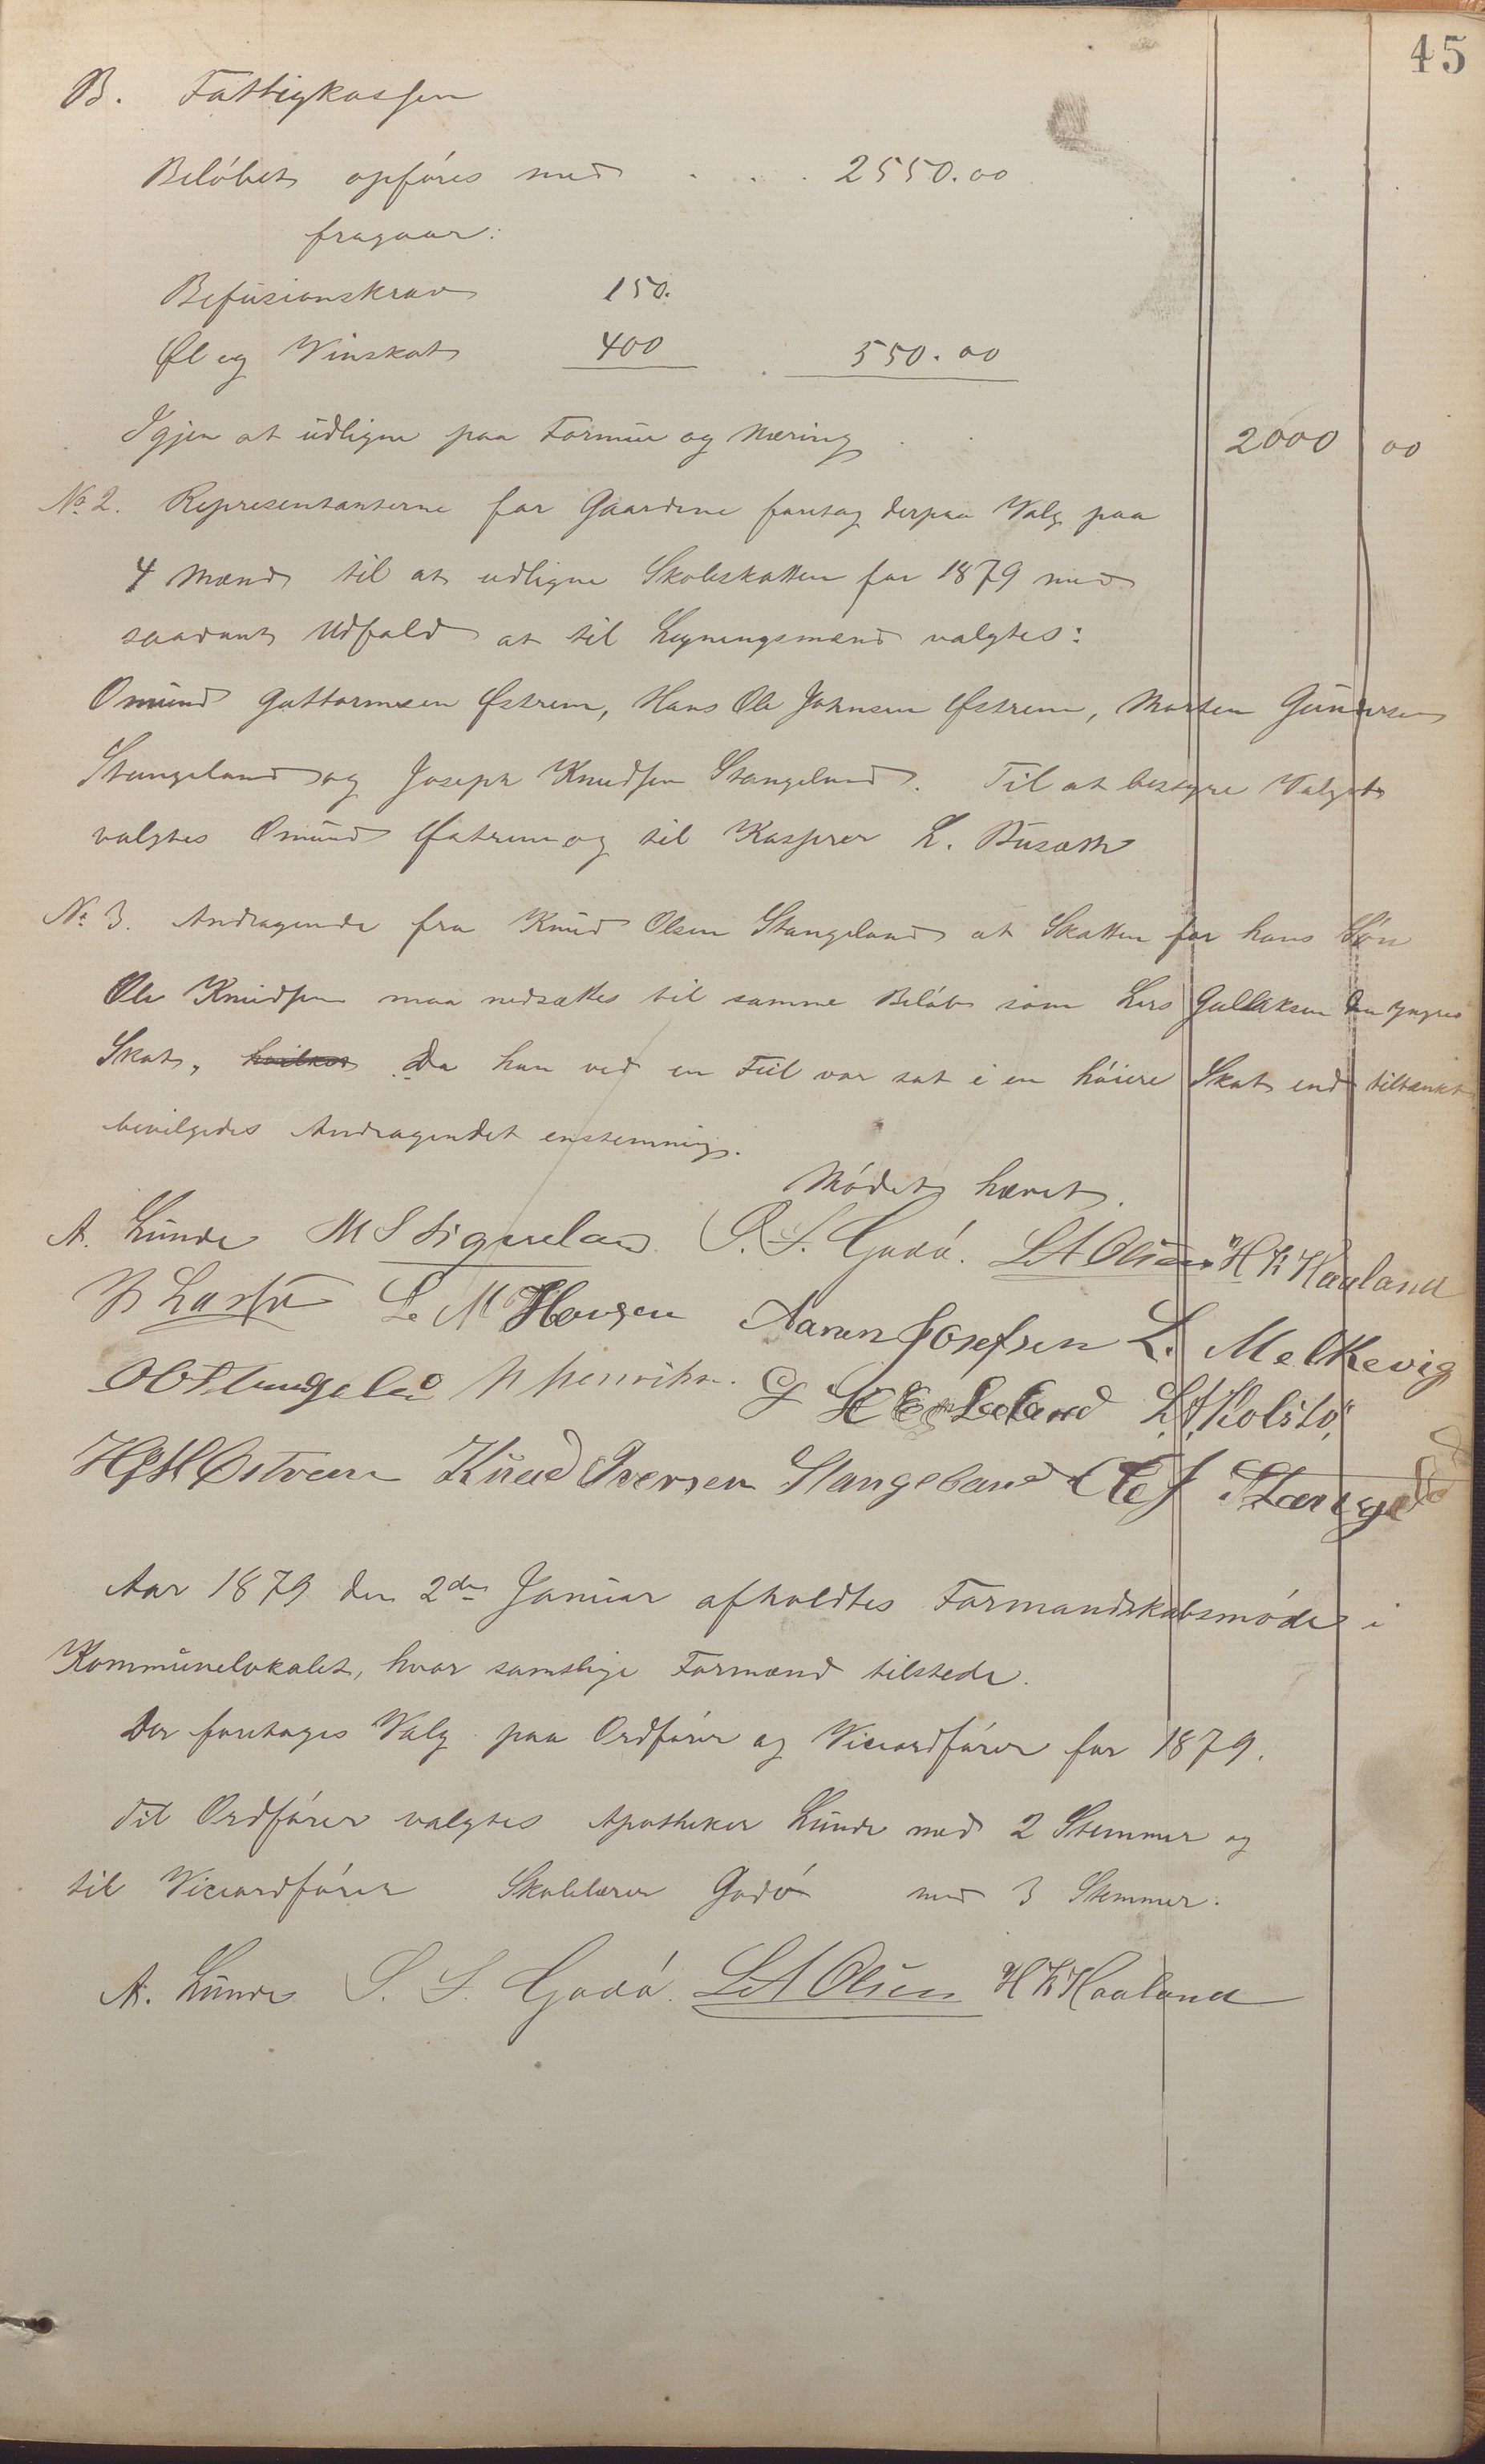 45
B. Fattigkassen
Beløbet opføres med . . . 2550.00
fragaar:
Refusionskrav 150.
Øl og Vinskat 400 550.00
Igjen at udligne paa Formue og Næring . . 2000 00
No 2. Representanterne for Gaardene foretog derpaa Valg paa
4 Mænd til at udligne Skoleskatten for 1879 med
saadant Udfald at til Ligningsmænd valgtes:
Omund Guttormsen Østrem, Hans Ole Johnsen Østrem, Morten Gundersen
Stangeland og Joseph Knudsen Stangeland. Til at bestyre Valget
valgtes Omund Østrem og til Kasserer L. Busæth
No 3. Andragende fra Knud Olsen Stangeland at Skatten for hans Søn
Ole Knudsen maa nedsættes til samme Beløb som Lars Gullaksen den yngres
Skat, hvilket Da han ved en Feil var sat i en høiere Skat end tiltænkt
bevilgedes Andragendet enstemmig.
Mødet hævet.
A. Lunde M S Liguelan S. S. Gadó. L A Olsen H K Haaland
L M Hansen Aanen Josefsen L. Melkevig
O Stangeland H Henriks. L A Kolstø,
H J H Østrem Knud Iversen Stangeland Ole J Stangeland
Aar 1879 den 2den Januar afholdtes Formandskabsmøde i
Kommunelokalet, hvor samtlige Formænd tilstede.
Der foretoges Valg paa Ordfører og Viceordfører for 1879.
Til Ordfører valgtes Apotheker Lunde med 2 Stemmer og
til Viceordfører Skolelærer Gadó med 3 Stemmer.
A. Lunde S. S. Gadó. L A Olsen H K Haaland